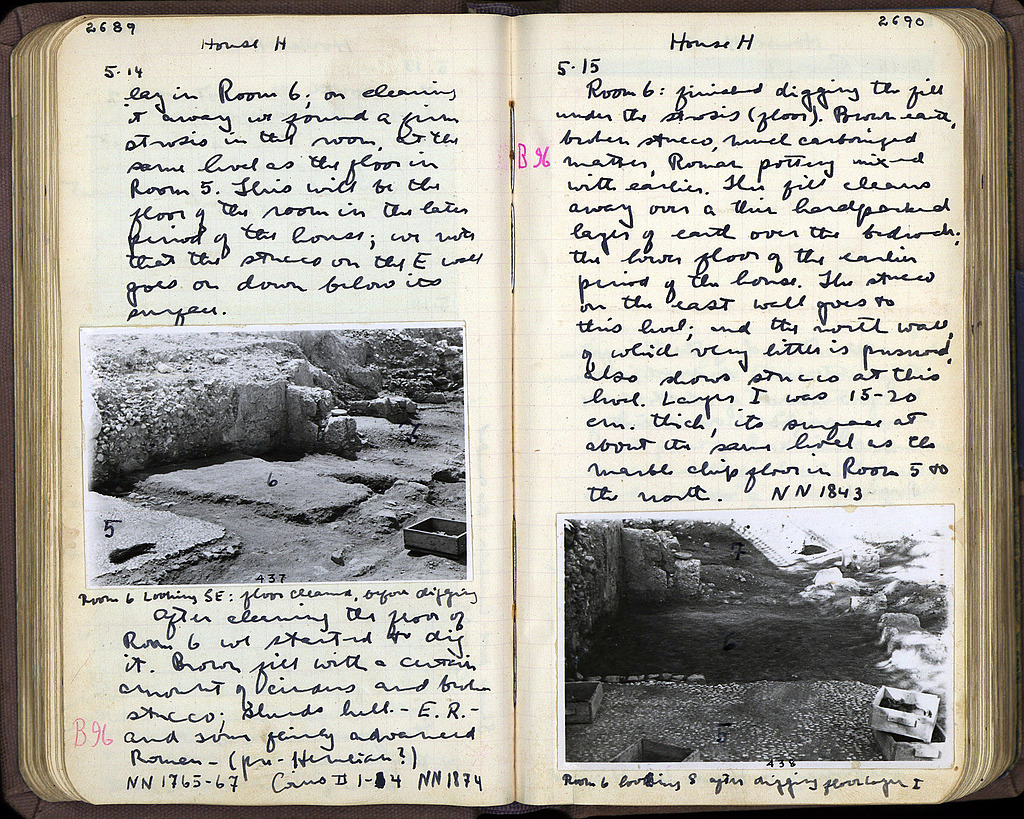 2689
House H
5.14
lay in Room 6; on cleaning
it away we found a firm
strosis in the room, at the
same level as the floor in
Room 5. This will be the
floor of the room in the later
period of the house; we note
that the stucco on the E wall
goes on down below its
surface.
5
6
7
437
Room 6 Looking SE: floor cleaned, before digging
After cleaning the floor of
Room 6 we started to dig
it. Brown fill with a certain
amount of cinders and broken
stucco; Sherds hell. - E.R. -
B 96
and some fairly advanced
Roman - (pre-Herulian?)
NN 1765-67 Coins II 1-4 NN 1874
2690
House H
5.15
Room 6: finished digging the fill
under the strosis (floor). Brown earth,
broken stucco, much carbonized
B 96
matter, Roman pottery mixed
with earlier. The fill cleans
away over a thin hardpacked
layer of earth over the bedrock;
the lower floor of the earlier
period of the house. The stucco
on the east wall goes to
this level; and the north wall,
of which very little is preserved,
also shows stucco at this
level. Layer I was 15-20
cm. thick, its surface at
about the same level as the
marble chip floor in Room 5 to
the north. NN 1843
7
6
5
438
Room 6 looking S after digging floor layer I